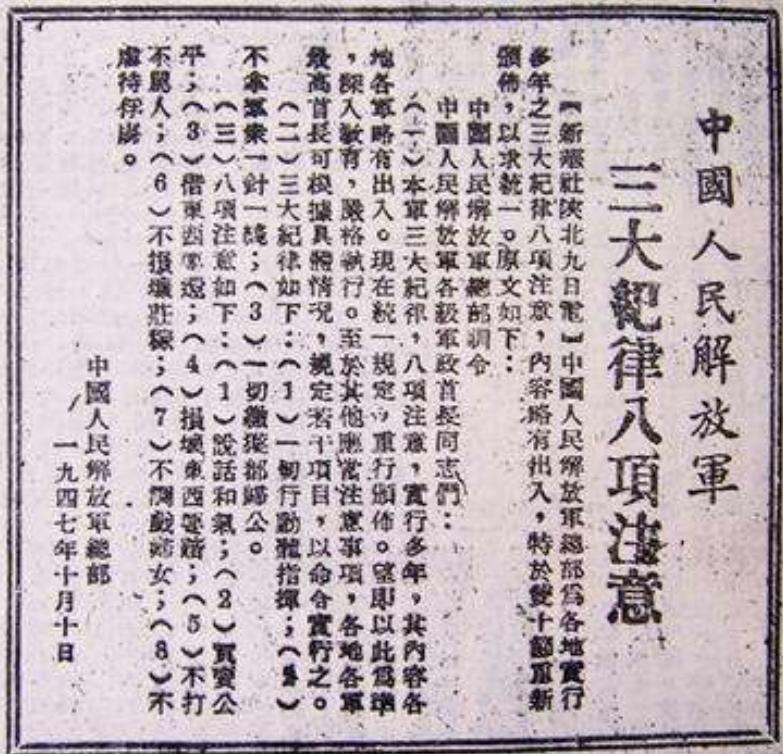 中國人民解放軍
三大紀律八項注意
【新華社陝北九日電】中國人民解放軍總部爲各地實行
多年之三大紀律八項注意,內容略有出入,特於雙十節重新
頒佈,以求統一。原文如下:
中國人民解放軍總部訓令
中國人民解放軍各級軍政首長同志們:
(一)本軍三大紀律,八項注意,實行多年,其內容各
地各軍略有出入。現在統一規定,重行頒佈。望即以此爲準
,深入敎育,嚴格執行。至於其他應當注意事項,各地各軍
最高首長可根據具體情況,規定若干項目,以命令實行之。
(二)三大紀律如下:(1)一切行動聽指揮;(2)
不拿羣衆一針一綫;(3)一切繳獲都歸公。
(三)八項注意如下:(1)說話和氣;(2)買賣公
平;(3)借東西要還;(4)損壞東西要賠;(5)不打
不罵人;(6)不損壞莊稼;(7)不調戲婦女;(8)不
虐待俘虜。
中國人民解放軍總部
一九四七年十月十日